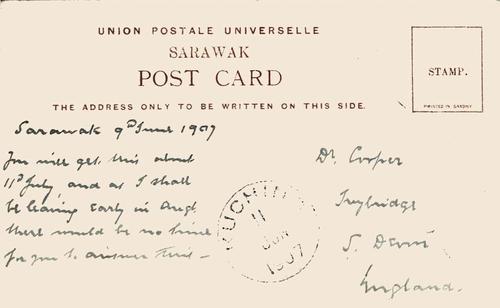 UNION POSTALE UNIVERSELLE
SARAWAK
POST CARD
THE ADDRESS ONLY TO BE WRITTEN ON THIS SIDE.
STAMP.
PRINTED IN SAXONY
Sarawak 9th June 1907
You will get this about
11th July, and as I shall
be leaving early in Augt
there would be no time
for you to answer this –
KUCHING
11
JUN
1907
Dr. Cooper
Ivybridge
S. Devon
England.